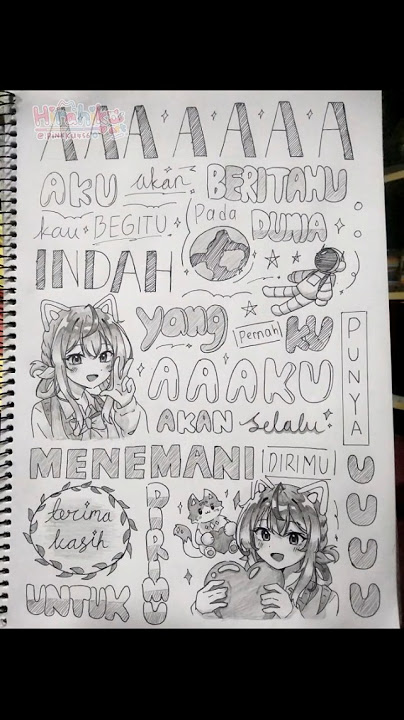 AAAAAAA
AKU akan BERITAHU
kau BEGITU Pada DUNIA
INDAH
yang Pernah KU
PUNYA
AAAKU
AKAN selalu
MENEMANI DIRIMU UUUU
terima
kasih
UNTUK
DIRIMU